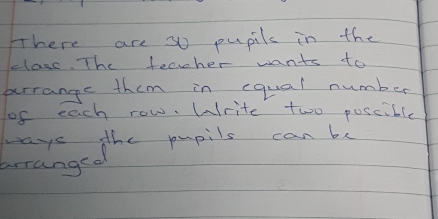 There are 30 pupils in the
class. The teacher wants to
arrange them in equal number
of each row. Write two possible
ways the pupils can be
arranged